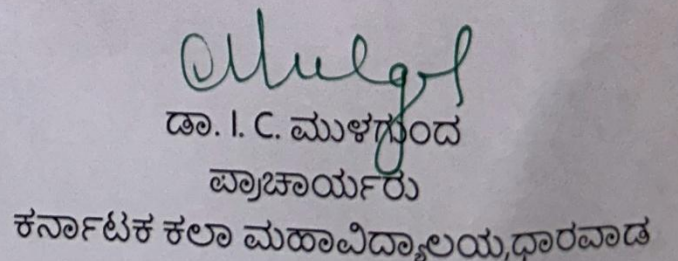 ಡಾ. I. C. ಮುಳಗುಂದ
ಪ್ರಾಚಾರ್ಯರು
ಕರ್ನಾಟಕ ಕಲಾ ಮಹಾವಿದ್ಯಾಲಯ,ಧಾರವಾಡ